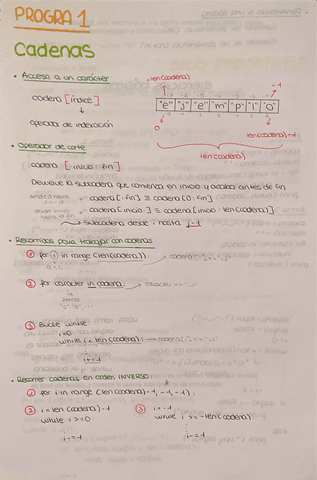 PROGRA 1
Cadenas
• Acceso a un carácter
cadena [índice]
operador de indexación
-len(cadena)
-1
"e" "j" "e" "m" "p" "l" "o"
0
len(cadena)-1
len(cadena)
• Operador de corte
cadena [inicio : fin]
Devuelve la subcadena que comienza en inicio y acaba antes de fin
cadena [ : fin] ≡ cadena [0 : fin]
cadena [inicio : ] ≡ cadena [inicio : len(cadena)]
subcadena desde i hasta j-1
• Recorridos para trabajar con cadenas
① for i in range (len(cadena)):
② for caracter in cadena:
③ Bucle while
i=0
while i < len(cadena):
i+=1
• Recorrer cadenas en orden INVERSO:
② for i in range (len(cadena)-1, -1, -1):
③ i = len(cadena)-1
while i >= 0:
i-=1
③ i = -1
while i >= -len(cadena):
i-=1